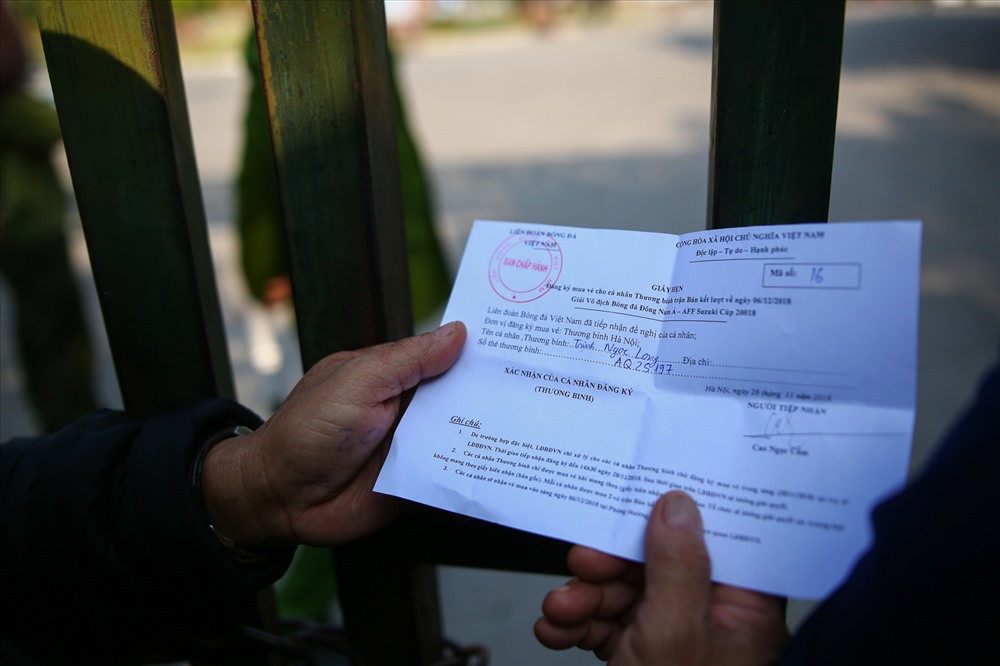 LIÊN ĐOÀN BÓNG ĐÁ
VIỆT NAM
BAN CHẤP HÀNH
CỘNG HÒA XÃ HỘI CHỦ NGHĨA VIỆT NAM
Độc lập - Tự do - Hạnh phúc
Mã số: 16
GIẤY HẸN
Đăng ký mua vé cho cá nhân Thương binh trận Bán kết lượt về ngày 06/12/2018
Giải Vô địch Bóng đá Đông Nam Á - AFF Suzuki Cúp 20018
Liên đoàn Bóng đá Việt Nam đã tiếp nhận đề nghị của cá nhân:
Đơn vị đăng ký mua vé: Thương binh Hà Nội;
Tên cá nhân ,Thương binh: Trịnh Ngọc Long Địa chỉ:
Số thẻ thương binh: AQ 25197
Hà Nội, ngày 28 tháng 11 năm 2018
XÁC NHẬN CỦA CÁ NHÂN ĐĂNG KÝ
(THƯƠNG BINH)
NGƯỜI TIẾP NHẬN
Cao Ngọc Cầm
Ghi chú:
1. Do trường hợp đặc biệt, LĐBĐVN chỉ xử lý cho các cá nhân Thương binh chờ đăng ký mua vé trong sáng
LĐBĐVN. Thời gian tiếp nhận đăng ký đến 14h30 ngày 28/11/2018. Sau thời gian trên LĐBĐVN sẽ không giải quyết.
2. Các cá nhân Thương binh chỉ được mua vé khi mang theo (giấy biên nhận
không mang theo giấy biên nhận (bản gốc). Mỗi cá nhân được mua 2 vé trận Bán kết
3. Các cá nhân sẽ nhận vé mua vào sáng ngày 06/12/2018 tại Phòng thường
quan LĐBĐVN.